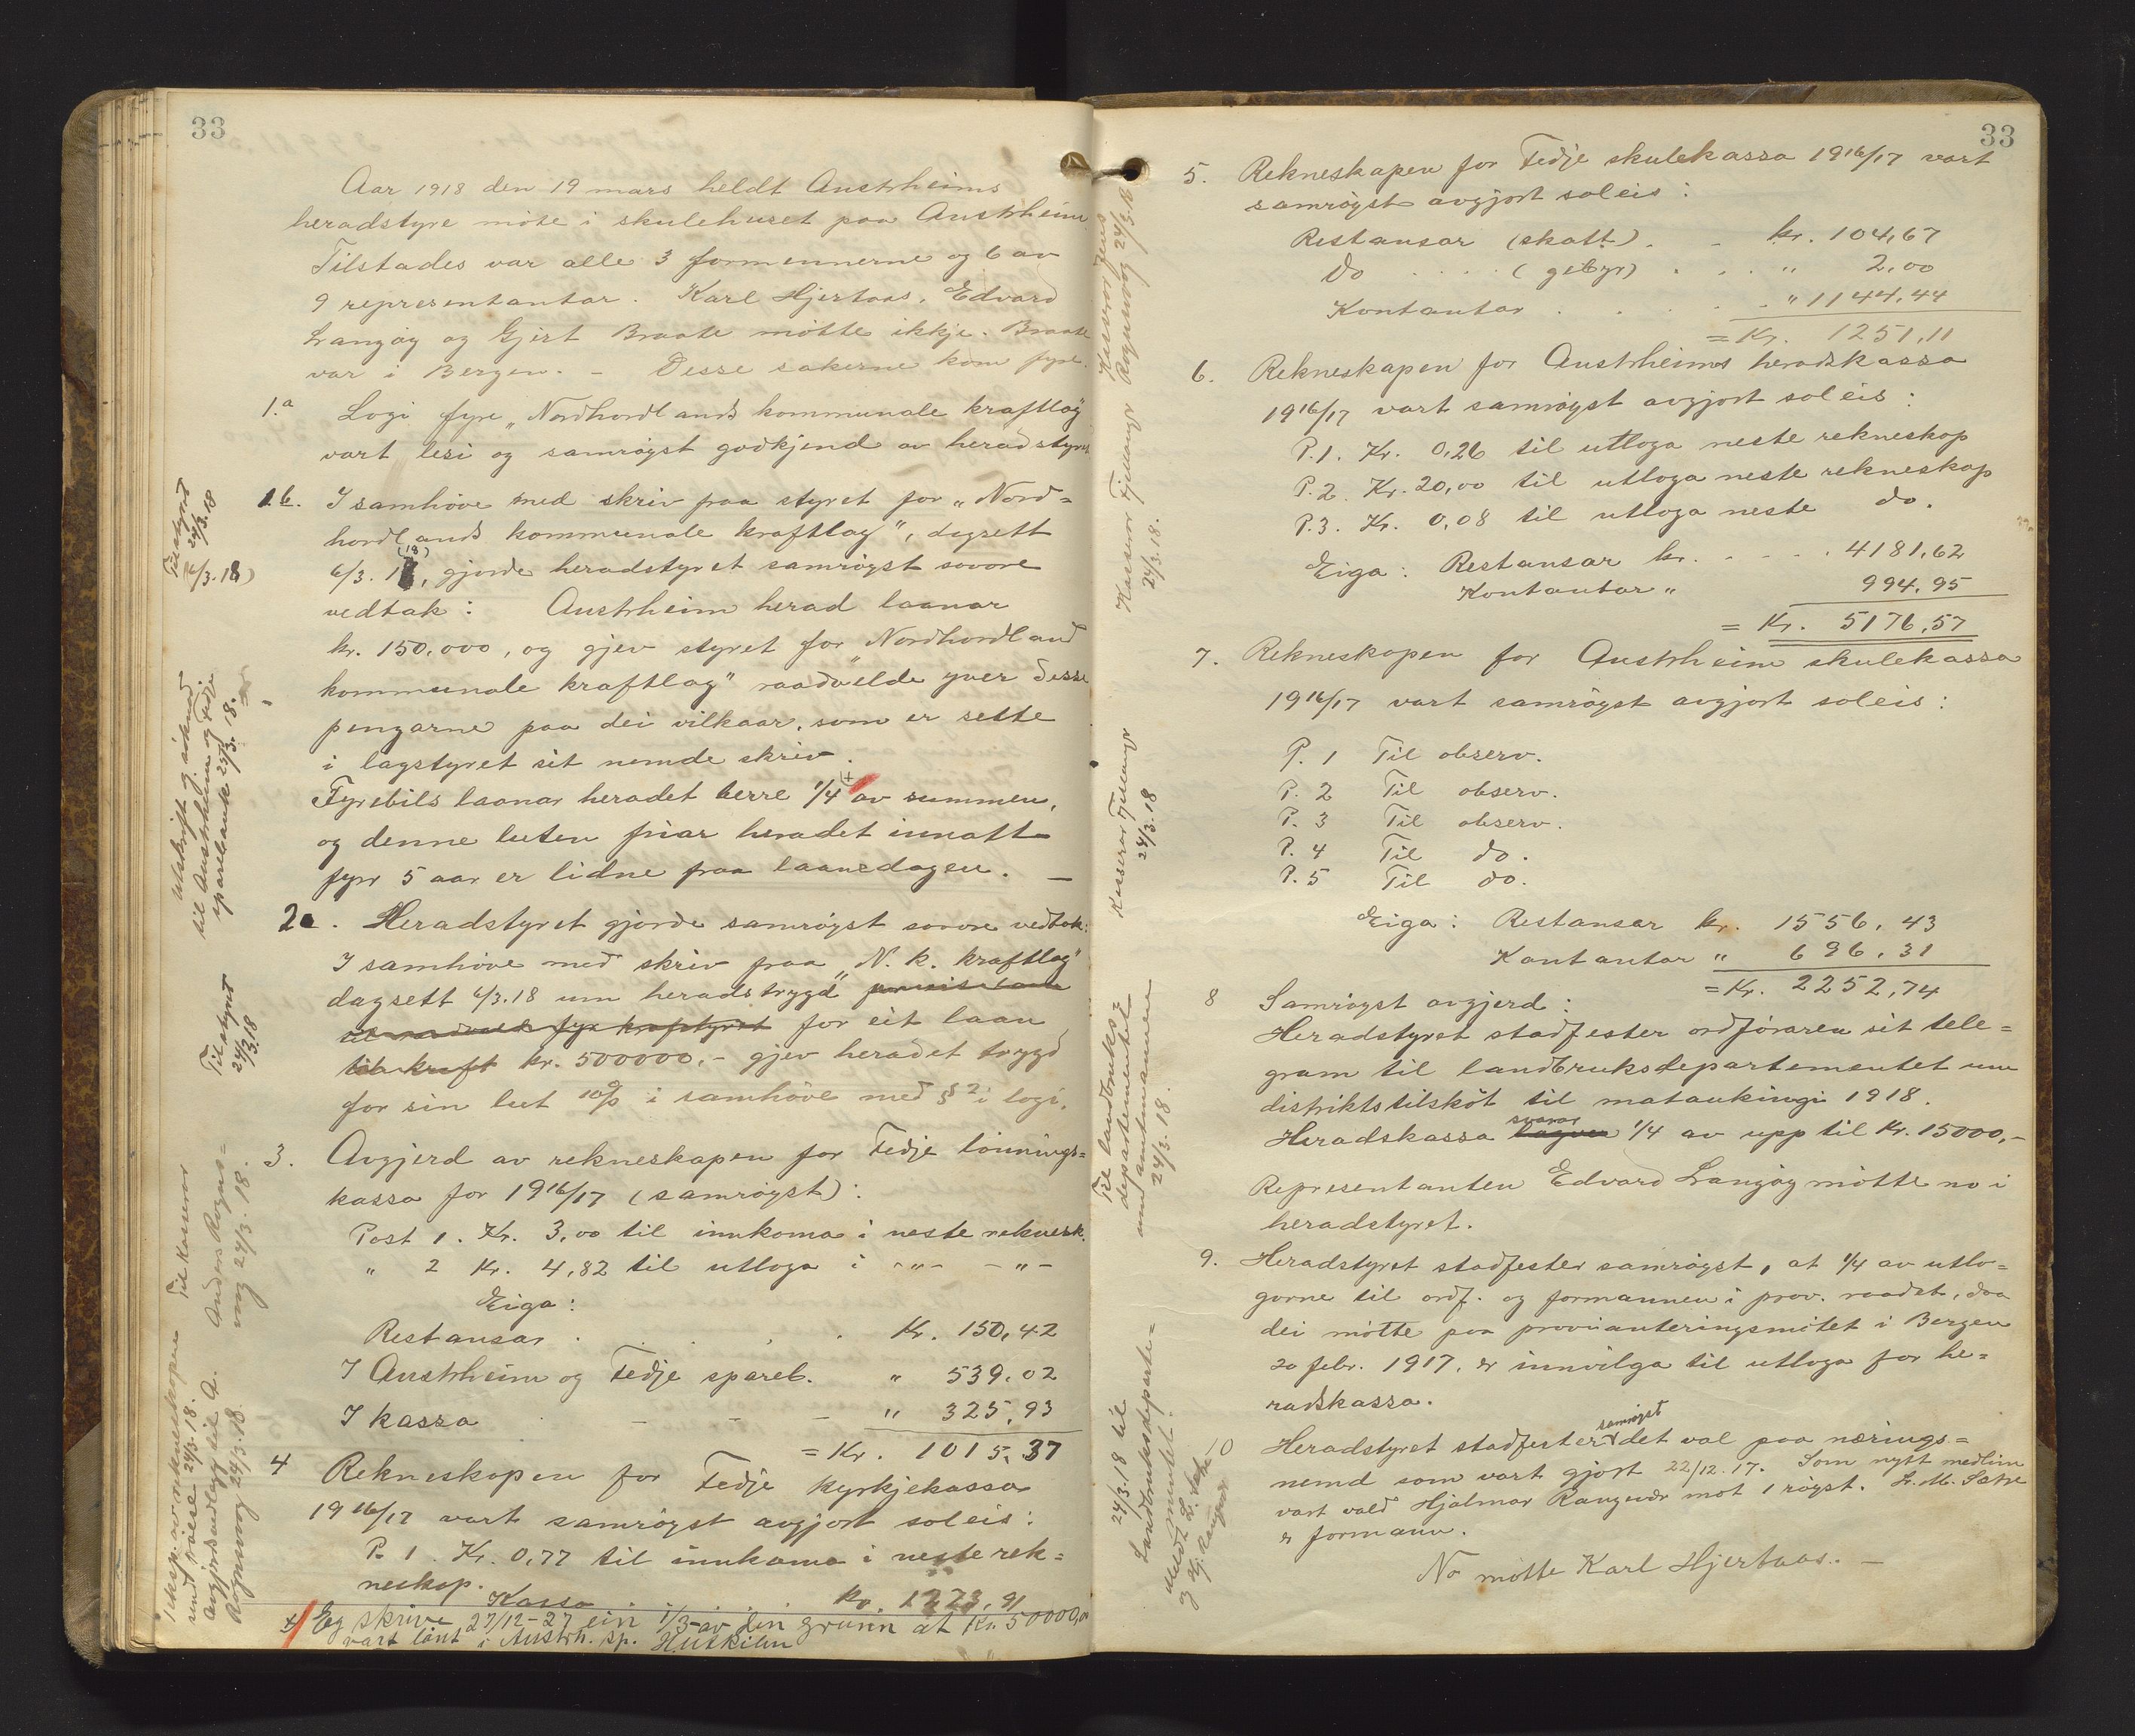 33
Aar 1918 den 19 mars heldt Austrheims
heradstyre møte i skulehuset paa Austrheim
Tilstades var alle 3 formennerne og 6 av
9 representantar. Karl Hjertaas, Edvard
Langøy og Gjert Braate møtte ikkje. Braate
var i Bergen. – Desse sakerne kom fyre.
1.a Logi fyre „Nordhordlands kommunale kraftlag"
vart lesi og samrøyst godkjend av heradstyret
1b. I samhøve med skriv fraa styret for „Nord=
hordlands kommunale kraftlag", dagsett
(18)
6/3. 18, gjorde heradstyret samrøyst sovore
vedtak: Austrheim herad laanar
kr. 150.000, og gjev styret for „Nordhordland
kommunale kraftlag" raadvelde yver desse
pengarne paa dei vilkaar, som er sette
i lagstyret sit nemde skriv.
Fyrebils laanar heradet berre 1/4 (+) av summen,
og denne luten friar heradet innatt
fyrr 5 aar er lidne fraa laanedagen. –
2a. Heradstyret gjorde samrøyst sovore vedtak:
I samhøve med skriv fraa „N. k. kraftlag"
dagsett 6/3.18 um heradstrygd
for eit laan
til kraft kr. 500000,- gjev heradet trygd
for sin lut 10% i samhøve med § 2 i logi.
3. Avgjerd av rekneskapen for Fedje lønnings=
kassa for 1916/17 (samrøyst):
Post 1. Kr. 3,00 til innkoma i neste reknesk.
" 2 Kr. 4,82 til utloga i -"- -"-
Eiga:
Restansar . . . . Kr. 150,42
I Austrheim og Fedje spareb. " 539.02
I kassa – – – " 325,93
= Kr. 1015.37
4 Rekneskapen for Fedje kyrkjekassa
1916/17 vart samrøyst avgjort soleis:
P. 1. Kr. 0,77 til innkoma i neste rek=
neskap.
Kassa . . . . kr. 1223,91
+/ Eg skrive 27/12-27 ein 1/3 av din grunn at Kr. 50000,00
vart lånt i Austrh. sp. H. Utkilen
Til styret
24/3.18
(6/3.18)
Utskrift og søknad
til Austrheim og Fedje
sparebank 24/3.18.
Til styret
24/3.18
Til kasserar
Anders Rognø=
vog 24/3.18.
1 eksp. av rekneskapen
send 24/3.18.
Avgjerd utlagt til A.
Rognevog 24/3.18.
33
5. Rekneskapen for Fedje skulekassa 1916/17 vart
samrøyst avgjort soleis:
Restansar (skatt) . - kr. 104,67
Do . . . . (gebyr) . . . " 2.00
Kontantar . . . . . " 1144,44
= Kr. 1251,11
6. Rekneskapen for Austrheims heradskassa
1916/17 vart samrøyst avgjort soleis:
P. 1. Kr. 0,26 til utloga neste rekneskap
P. 2. Kr. 20,00 til utloga neste rekneskap
P. 3. Kr. 0,08 til utloga neste do.
Eiga: Restansar kr. - - . . 4181,62
Kontantar " 994,95
= Kr. 5176,57
7. Rekneskapen for Austrheim skulekassa
1916/17 vart samrøyst avgjort soleis:
P. 1 Til observ.
P. 2 Til observ.
P. 3 Til observ.
P. 4 Til do.
P. 5 Til do.
Eiga: Restansar kr. 1556,43
Kontantar " 696,31
= Kr. 2252,74
8 Samrøyst avgjerd:
Heradstyret stadfester ordføraren sit tele=
gram til landbruksdepartementet um
distriktstilskot til mataukingi 1918.
svarar
Heradskassa 1/4 av upp til Kr. 15000,-
Representanten Edvard Langøy møtte no i
heradstyret.
9. Heradstyret stadfester samrøyst, at 1/4 av utlo=
gorne til ordf. og formannen i prov. raadet, daa
dei møtte paa provianteringsmøtet i Bergen
20 febr. 1917, er innvilga til utloga for he=
radskassa.
samrøyst
10 Heradstyret stadfester det val paa nærings=
nemd som vart gjort 22/12.17. Som nytt medlim
vart vald Hjalmar Rangevær mot 1 røyst. L. M. Sætre
er formann.
No møtte Karl Hjertaas. –
Rognevog 24/3.18
Kasserar Fjellanger
24/3.18.
Kasserar Fjellanger
24/3.18
Til landbruks=
departementet
um amtmannen
24/3.18.
24/3.18 til
Landbruksdeparte=
mentet.
og Hj. Rangevær